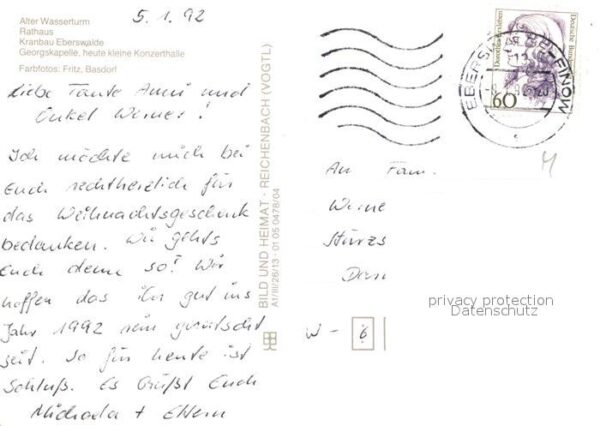 5.1.92
Alter Wasserturm
Rathaus
Kranbau Eberswalde
Georgskapelle, heute kleine Konzerthalle
Farbfotos: Fritz, Basdorf
Liebe Tante Anni und
Onkel Werner!
Ich möchte mich bei
Euch rechtherzlich für
das Weihnachtsgeschenk
bedanken. Wie gehts
Euch denn so? Wir
hoffen das ihr gut ins
Jahr 1992 rein gerutscht
seit. So für heute ist
Schluß. Es Grüßt Euch
Michaela + Eltern
BILD UND HEIMAT · REICHENBACH (VOGTL)
A1/III/26/13 · 01 05 0478/04
Deutsche Bundespost
60
EBERSWALDE-FINOW
An Fam.
Werne
Sturzs
Dan
W-6
privacy protection
Datenschutz